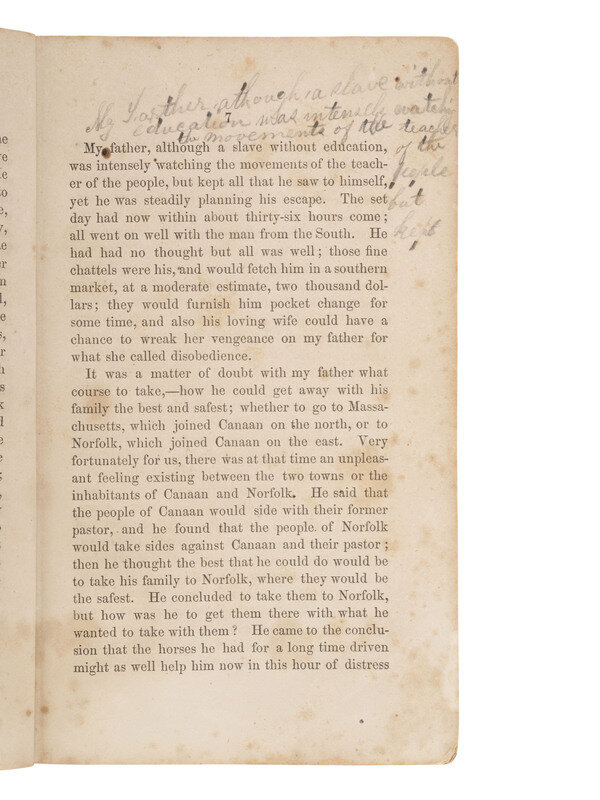 My Father, athough a slave without
Education was intensely watching
the movements of the teacher
of the
people
but
kept
7
My father, although a slave without education,
was intensely watching the movements of the teach-
er of the people, but kept all that he saw to himself,
yet he was steadily planning his escape. The set
day had now within about thirty-six hours come;
all went on well with the man from the South. He
had had no thought but all was well; those fine
chattels were his, and would fetch him in a southern
market, at a moderate estimate, two thousand dol-
lars; they would furnish him pocket change for
some time, and also his loving wife could have a
chance to wreak her vengeance on my father for
what she called disobedience.
It was a matter of doubt with my father what
course to take,—how he could get away with his
family the best and safest; whether to go to Massa-
chusetts, which joined Canaan on the north, or to
Norfolk, which joined Canaan on the east. Very
fortunately for us, there was at that time an unpleas-
ant feeling existing between the two towns or the
inhabitants of Canaan and Norfolk. He said that
the people of Canaan would side with their former
pastor, and he found that the people of Norfolk
would take sides against Canaan and their pastor;
then he thought the best that he could do would be
to take his family to Norfolk, where they would be
the safest. He concluded to take them to Norfolk,
but how was he to get them there with what he
wanted to take with them? He came to the conclu-
sion that the horses he had for a long time driven
might as well help him now in this hour of distress